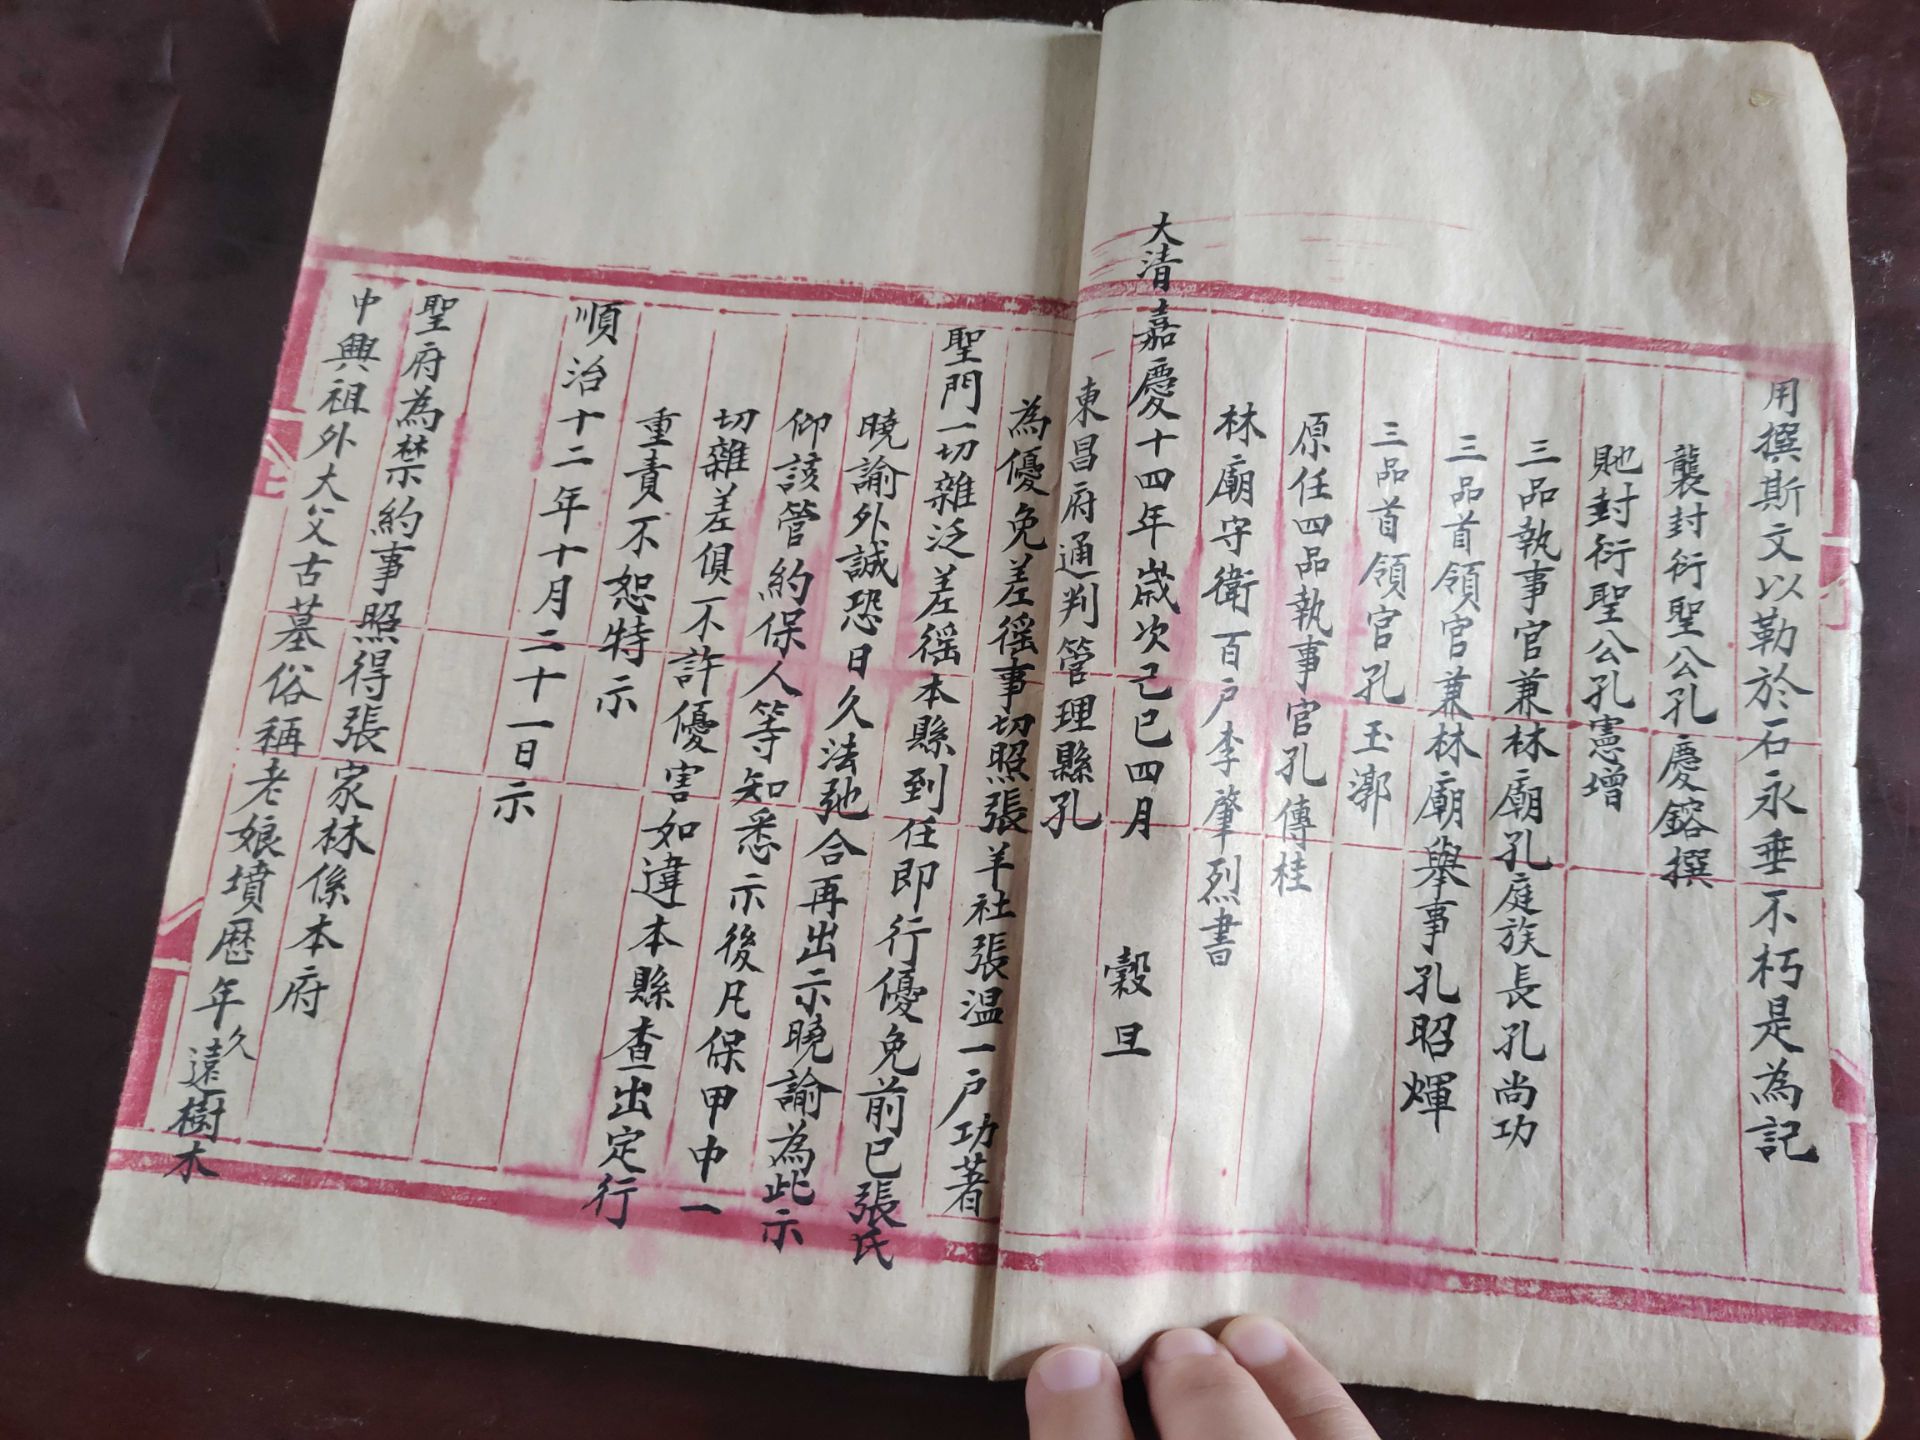 用撰斯文以勒於石永垂不朽是為記
襲封衍聖公孔慶鎔撰
貤封衍聖公孔憲增
三品執事官兼林廟孔庭族長孔尚功
三品首領官兼林廟舉事孔昭煇
三品首領官孔玉漷
原任四品執事官孔傳桂
林廟守衛百戶李肇烈書
大清嘉慶十四年歲次己巳四月 穀旦
東昌府通判管理縣孔
為優免差徭事切照張羊社張温一戶功著
聖門一切雜泛差徭本縣到任即行優免前已張氏
曉諭外誠恐日久法弛合再出示曉諭為此示
仰該管約保人等知悉示後凡保甲中一
切雜差俱不許優害如違本縣查出定行
重責不恕特示
順治十二年十月二十一日示
聖府為禁約事照得張家林係本府
中興祖外大父古墓俗稱老娘墳歷年久遠樹木